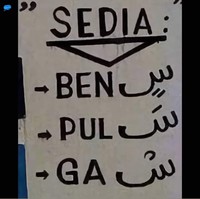 "SEDIA :"
→ BEN سٍ
→ PUL سَ
→ GA سْ